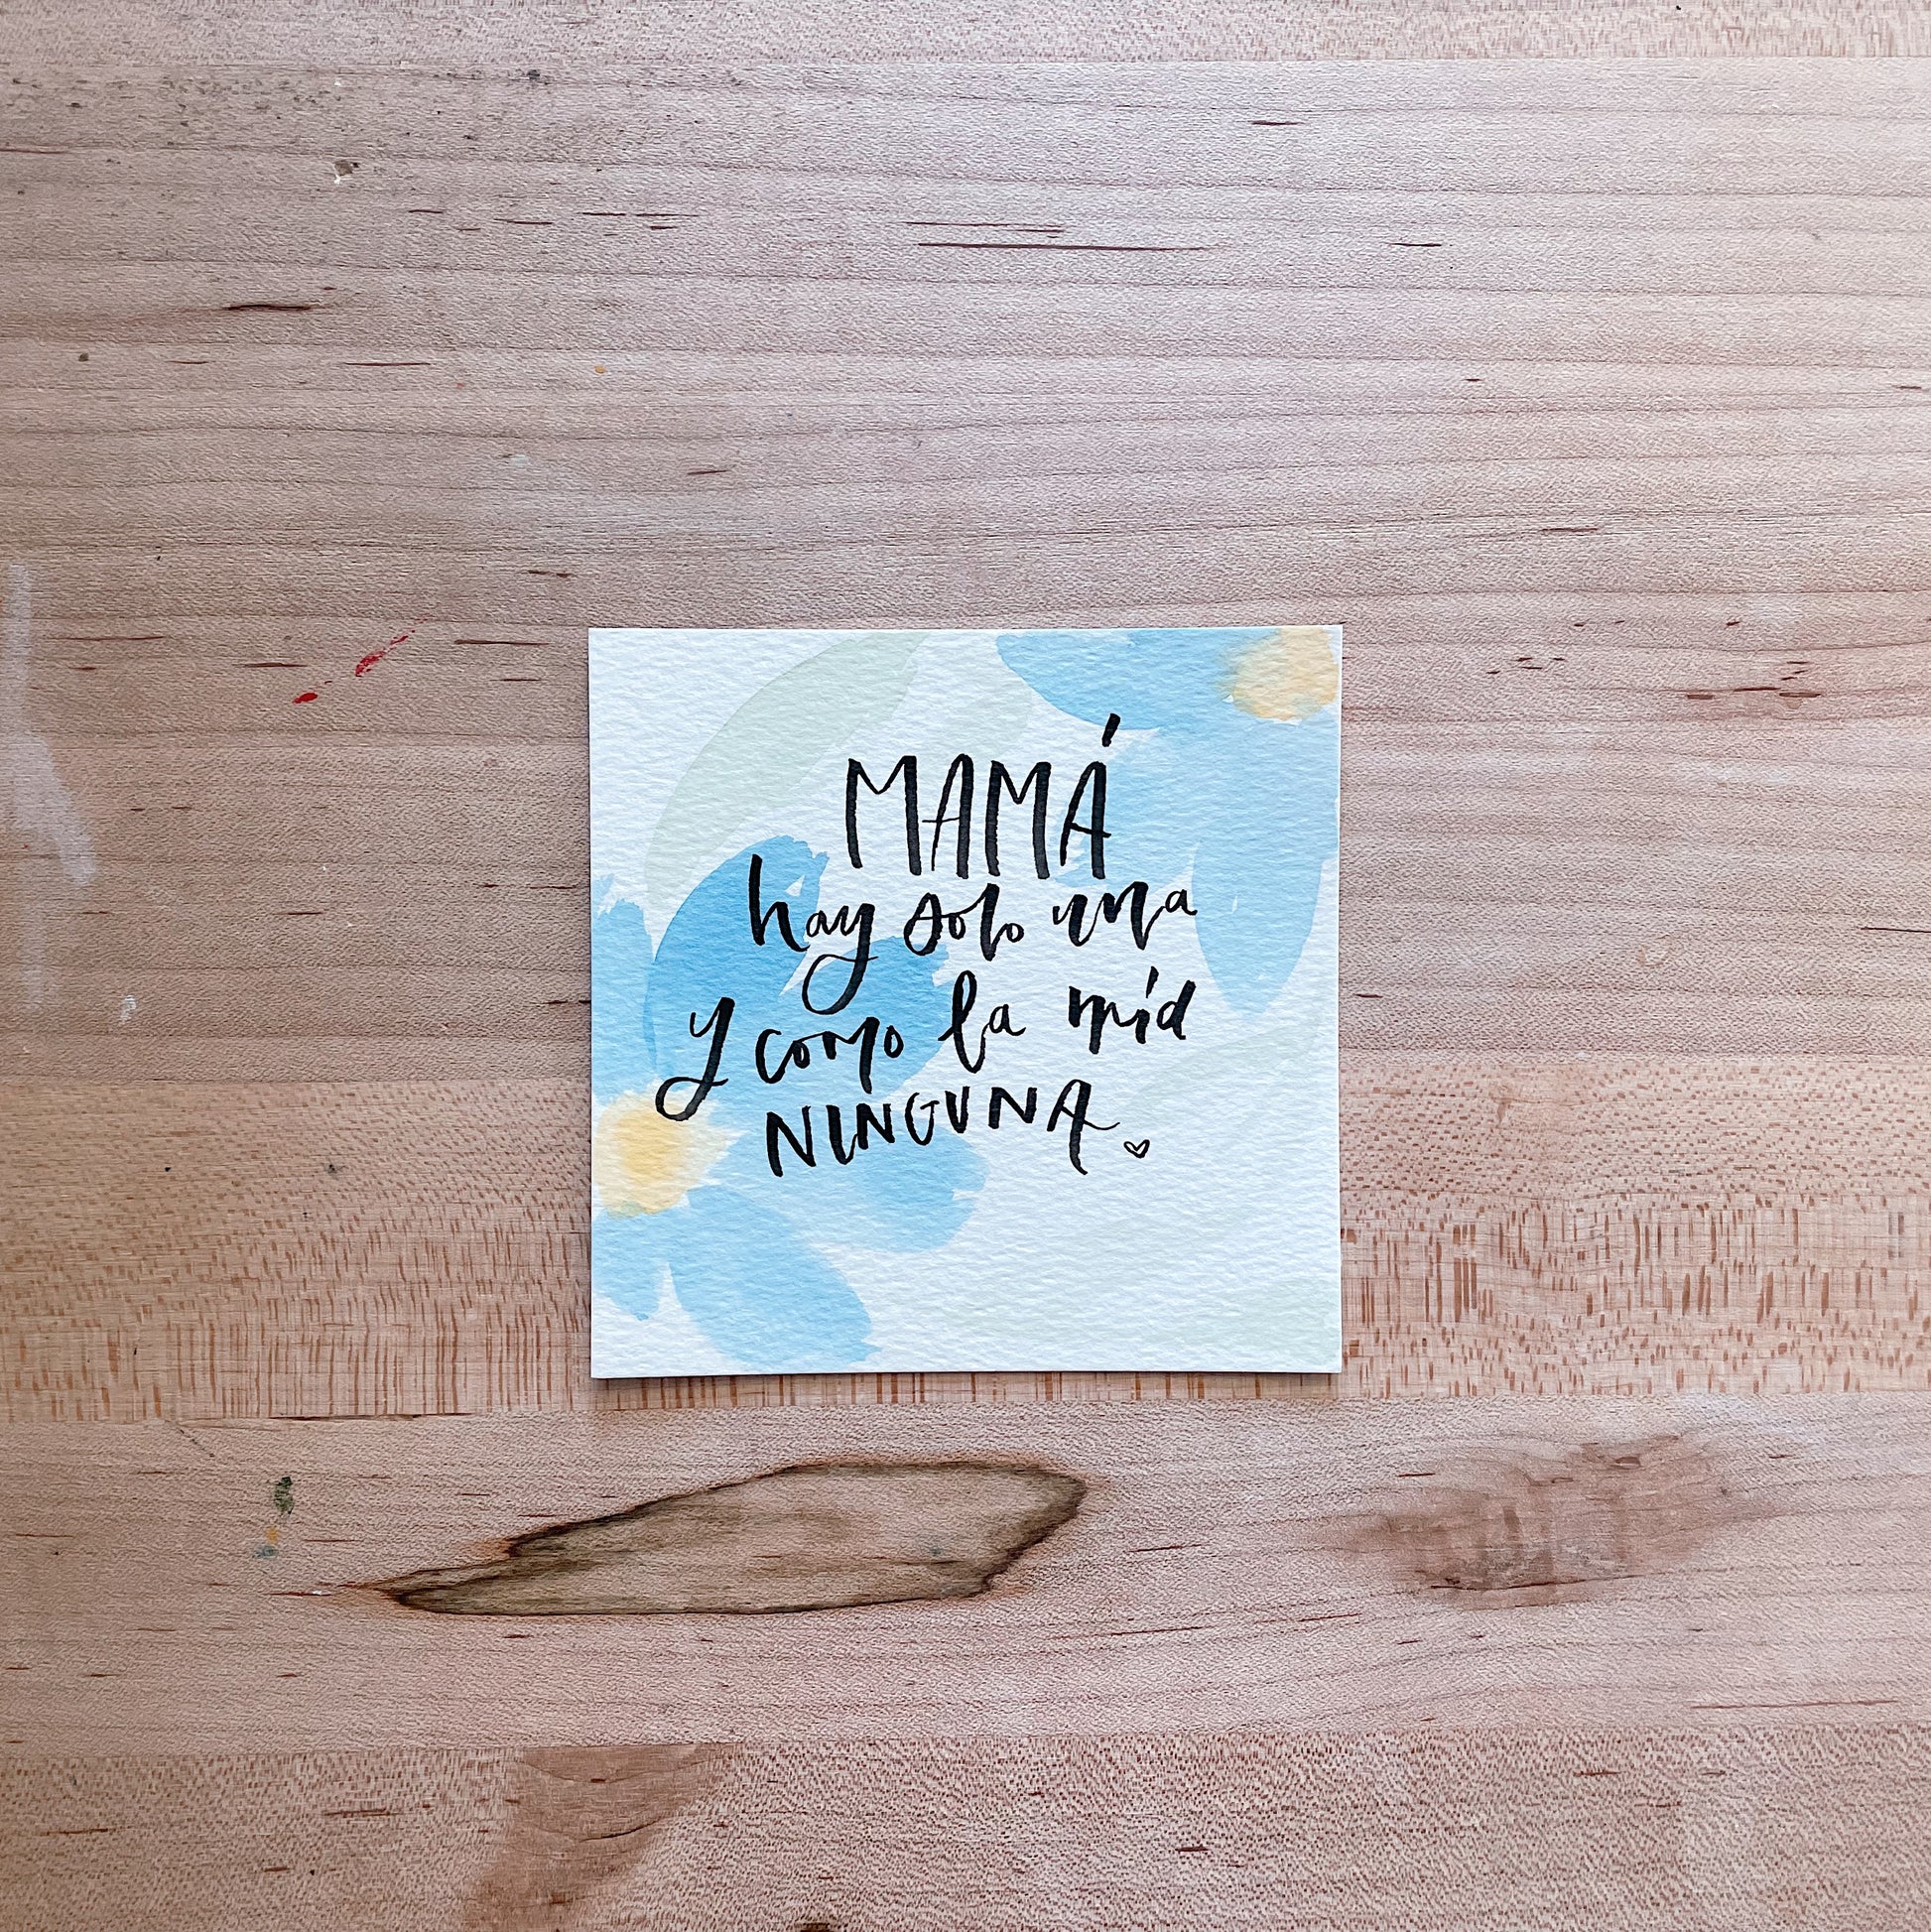 MAMÁ
hay solo una
y como la mía
NINGUNA